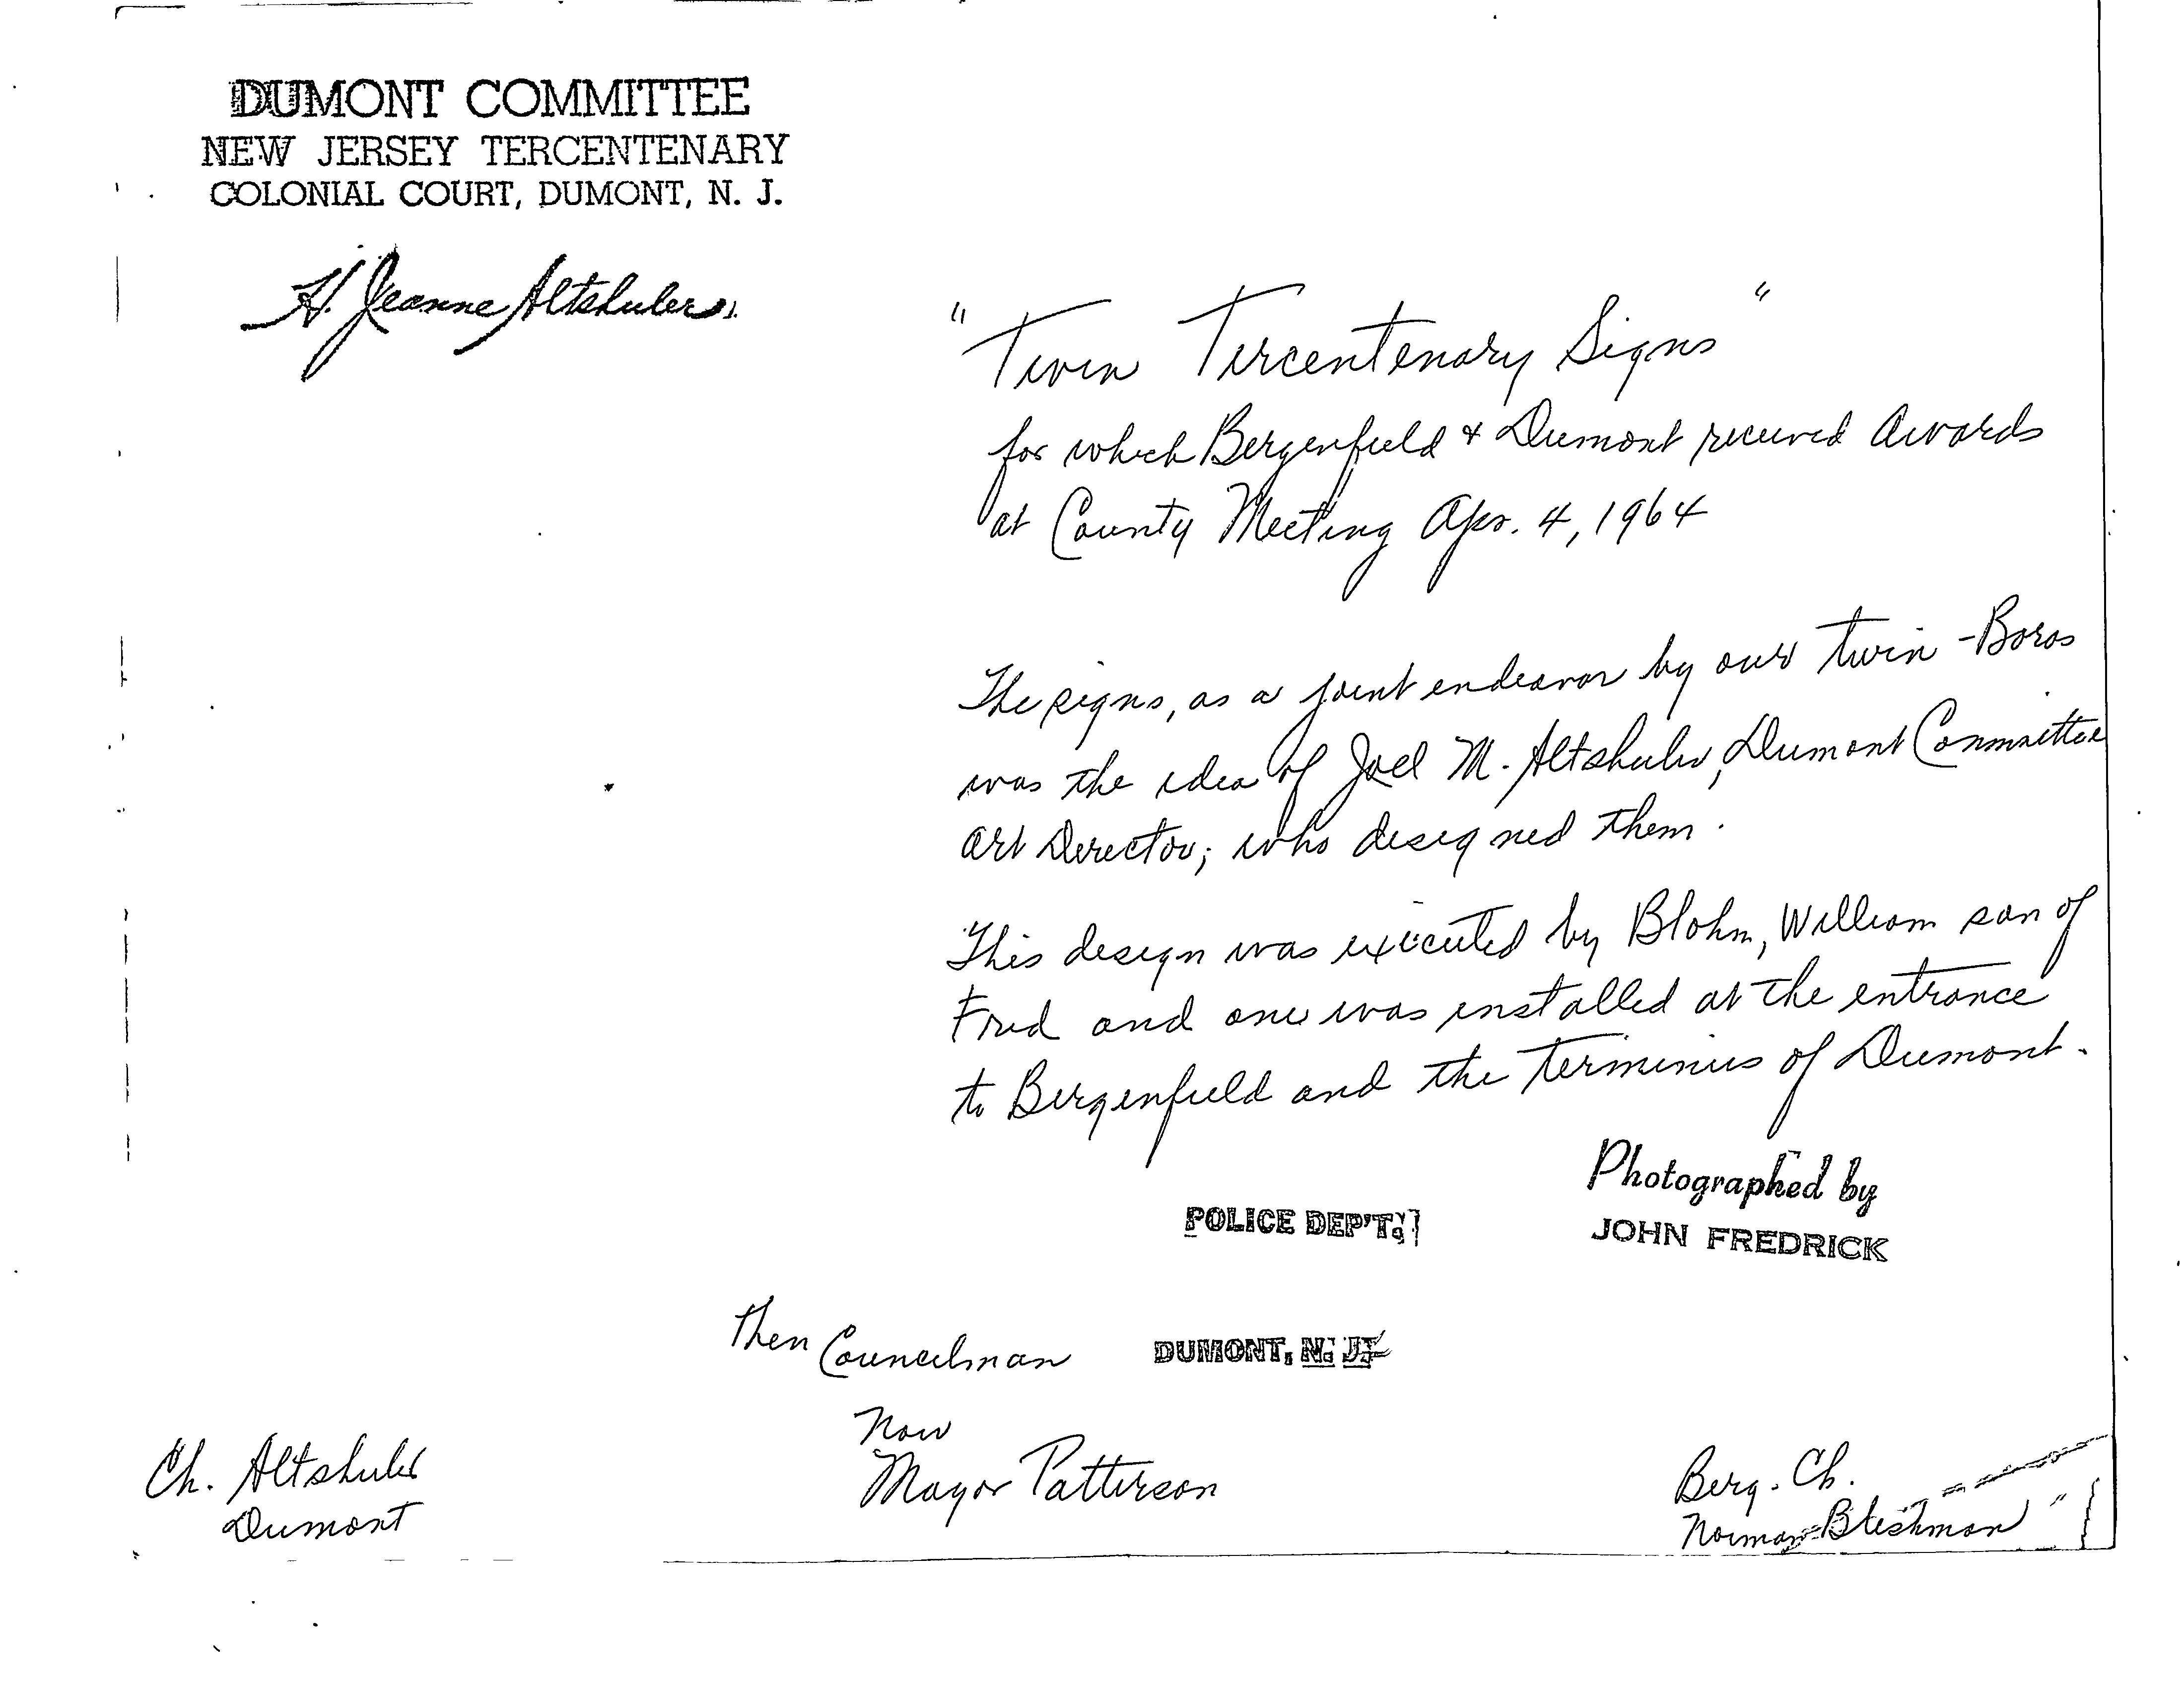 DUMONT COMMITTEE
NEW JERSEY TERCENTENARY
COLONIAL COURT, DUMONT, N. J.
H. Jeanne Altshuler
"Twin Tercentenary Signs"
for which Bergenfield & Dumont received Awards
at County Meeting Apr. 4, 1964
The signs, as a joint endeavor by our twin-Boros
was the idea of Joel M. Altshuler, Dumont Committee
Art Director; who designed them.
This design was executed by Blohm, William son of
Fred and one was installed at the entrance
to Bergenfield and the terminus of Dumont.
Photographed by
JOHN FREDRICK
POLICE DEP'T.
DUMONT, N. J.
Then Councilman
Now
Mayor Patterson
Ch. Altshuler
Dumont
Berg. Ch.
Norman Bleshman